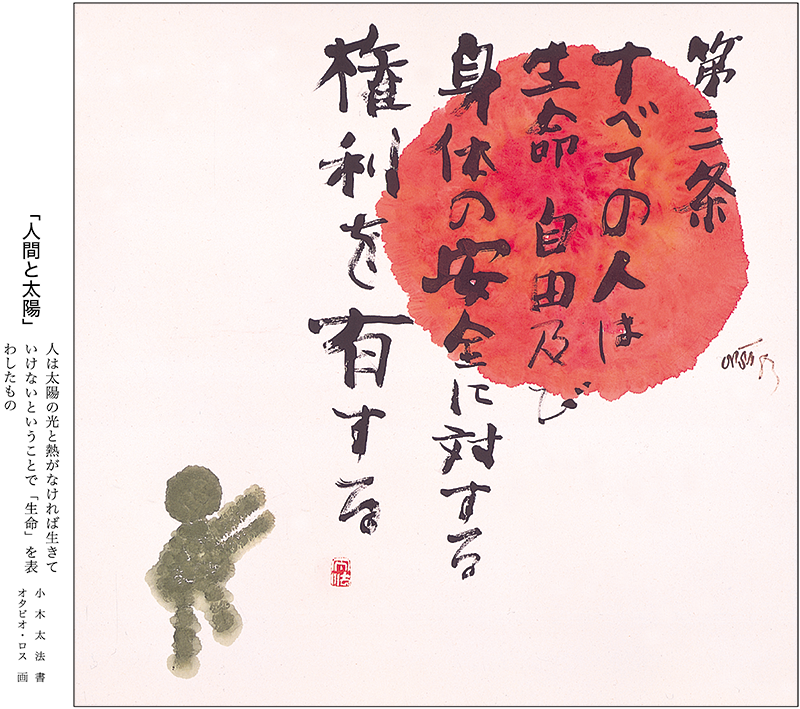 第三条
すべての人は
生命 自由及び
身体の安全に対する
権利を有する
「人間と太陽」
人は太陽の光と熱がなければ生きて
いけないということで「生命」を表
わしたもの
小木太法 書
オタビオ・ロス 画